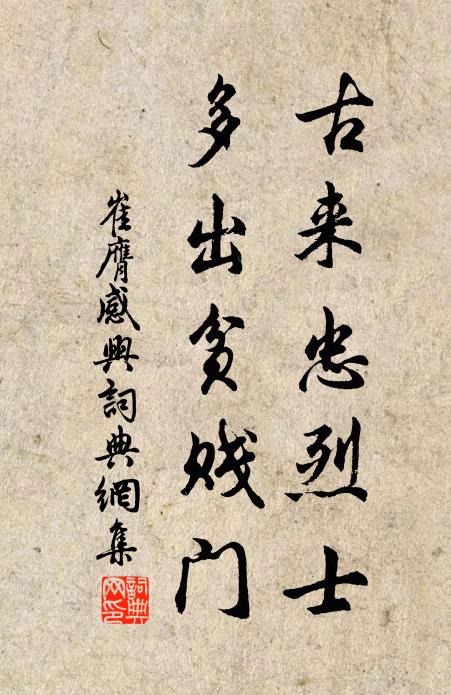 古来忠烈士
多出貧贱门
崔膺感興詞典網集
詞典网印